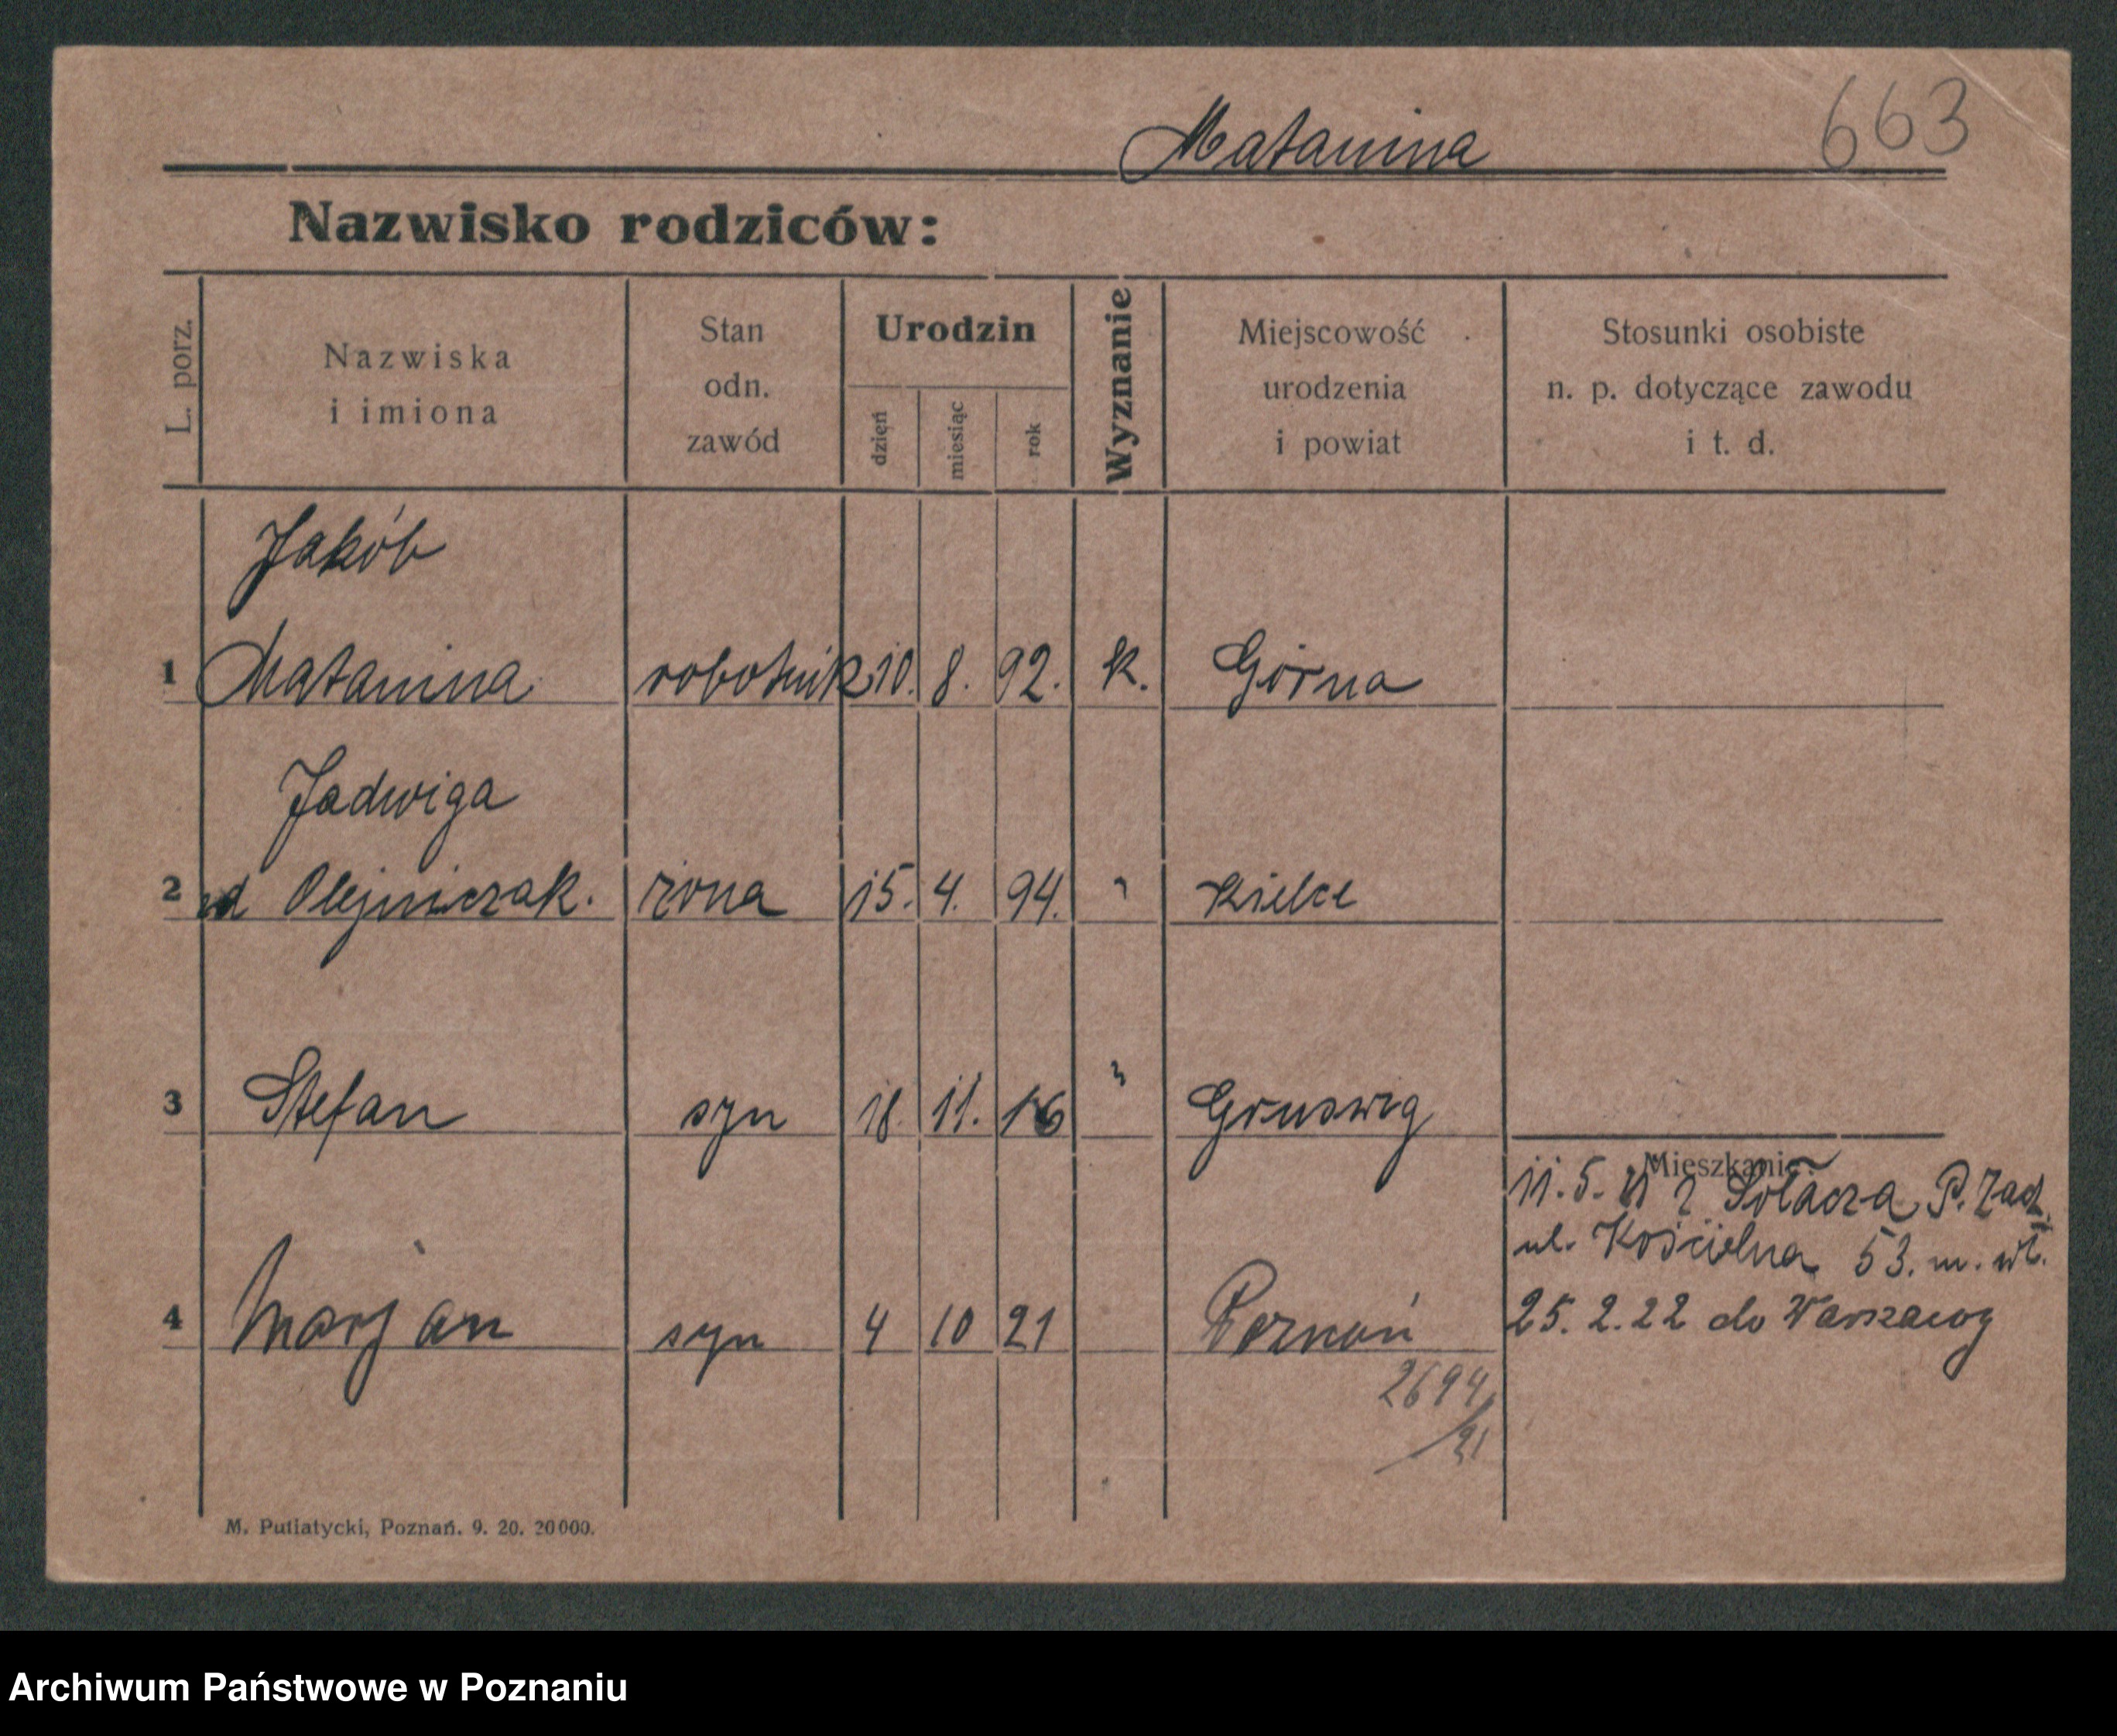 Matanina
663
Nazwisko rodziców:
L. porz.
Nazwiska
i imiona
Stan
odn.
zawód
Urodzin
dzień
miesiąc
rok
Wyznanie
Miejscowość
urodzenia
i powiat
Stosunki osobiste
n. p. dotyczące zawodu
i t. d.
Jakób
1 Matanina robotnik 10. 8. 92. k. Górna
Jadwiga
2 Olejniczak. żona 15. 4. 94. " Kielce
3 Stefan syn 18. 11. 16 " Gruswig
Mieszkanie:
11. 5. 21 z Sołacza P. Zach.
ul. Kościelna 53. m. wł.
4 Marjan syn 4 10 21 Poznań 25. 2. 22 do Warszawy
2694
/21
M. Putiatycki, Poznań. 9. 20. 20000.
Archiwum Państwowe w Poznaniu